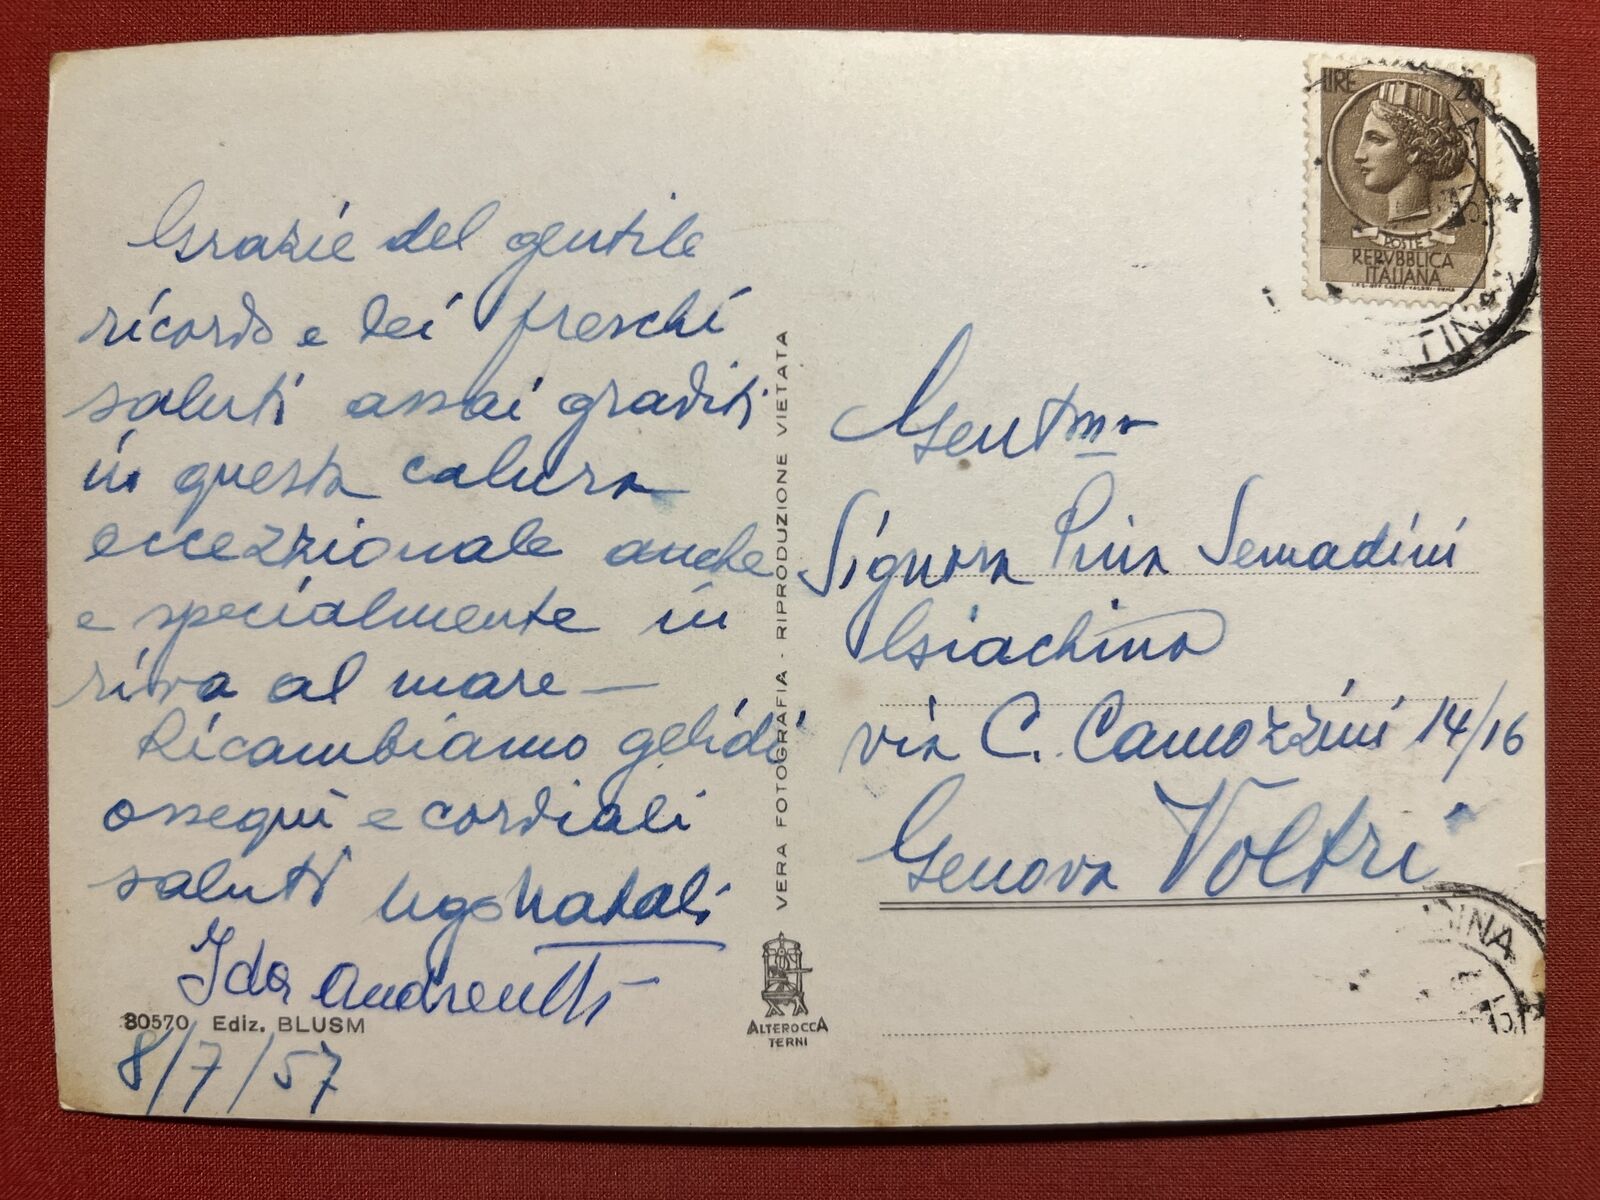 Grazie del gentile
ricordo e dei freschi
saluti assai graditi
in questa calura
eccezzionale anche
e specialmente in
riva al mare —
Ricambiamo gelidi
ossequi e cordiali
saluti Ugo Natali
Ida Andreutti
80570 Ediz. BLUSM
8/7/57
VERA FOTOGRAFIA - RIPRODUZIONE VIETATA
ALTEROCCA
TERNI
LIRE 20
POSTE
REPVBBLICA
ITALIANA
Gentma
Signora Pina Semadini
Giachino
via C. Camozzini 14/16
Genova Voltri